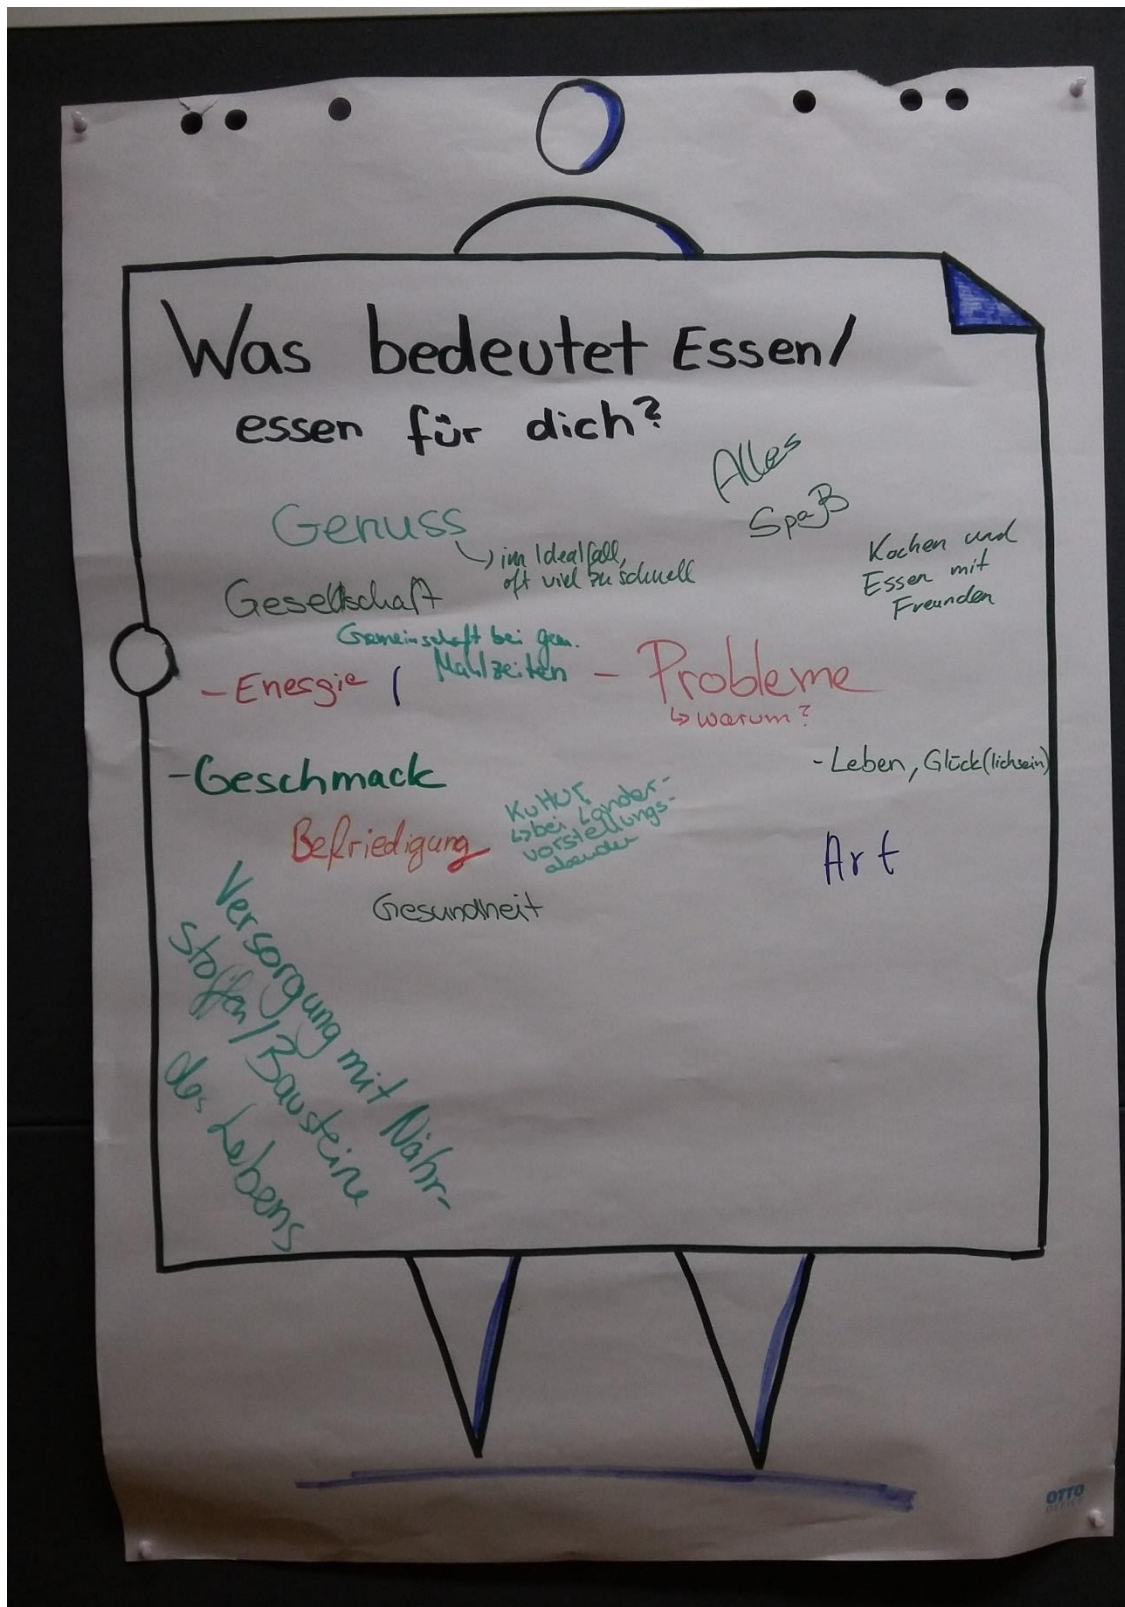 Was bedeutet Essen/
essen für dich?
Alles
Spaß
Genuss
↳ im Idealfall,
oft viel zu schnell
Kochen und
Essen mit
Freunden
Gesellschaft
Gemeinschaft bei gem.
Mahlzeiten
- Energie /
- Probleme
↳ warum?
- Geschmack
- Leben, Glück(lichsein)
Kultur
↳ bei Länder-
vorstellungs-
abenden
Befriedigung
Art
Gesundheit
Versorgung mit Nähr-
stoffen/Bausteine
des Lebens
OTTO
OFFICE